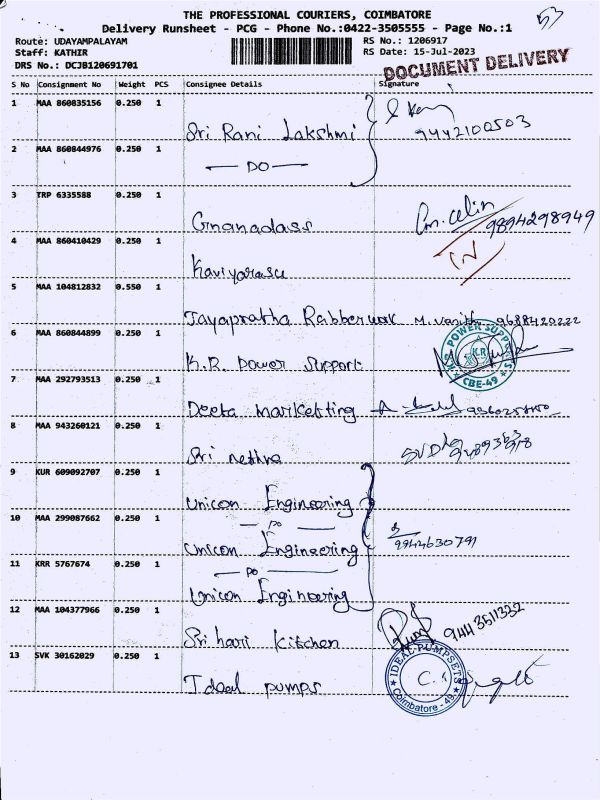 THE PROFESSIONAL COURIERS, COIMBATORE
Delivery Runsheet - PCG - Phone No.:0422-3505555 - Page No.:1
53
Route: UDAYAMPALAYAM
RS No.: 1206917
Staff: KATHIR
RS Date: 15-Jul-2023
DRS No.: DCJB120691701
DOCUMENT DELIVERY
S No Consignment No Weight PCS Consignee Details Signature
1 MAA 860835156 0.250 1
Sri Rani Lakshmi 9442100503
2 MAA 860844976 0.250 1
— DO —
3 TRP 6335588 0.250 1
Gnanadass Celin 9894298949
4 MAA 860410429 0.250 1
Kaviyarasu
5 MAA 104812832 0.550 1
Jayapratha Rabberwork M. 9688420222
6 MAA 860844899 0.250 1
K.R. Power Support
K.R. POWER SUPPORT
K.R
CBE-49
7 MAA 292793513 0.250 1
Deeta Marketting
8 MAA 943260121 0.250 1
Sri nethra SVD
9 KUR 609092707 0.250 1
Unicon Engineering
10 MAA 299087662 0.250 1
— DO —
Unicon Engineering 9944630791
11 KRR 5767674 0.250 1
— DO —
Unicon Engineering
12 MAA 104377966 0.250 1
Sri hari Kitchen 9443511332
13 SVK 30162029 0.250 1
Ideal pumps
IDEAL PUMPSETS
Coimbatore - 49.